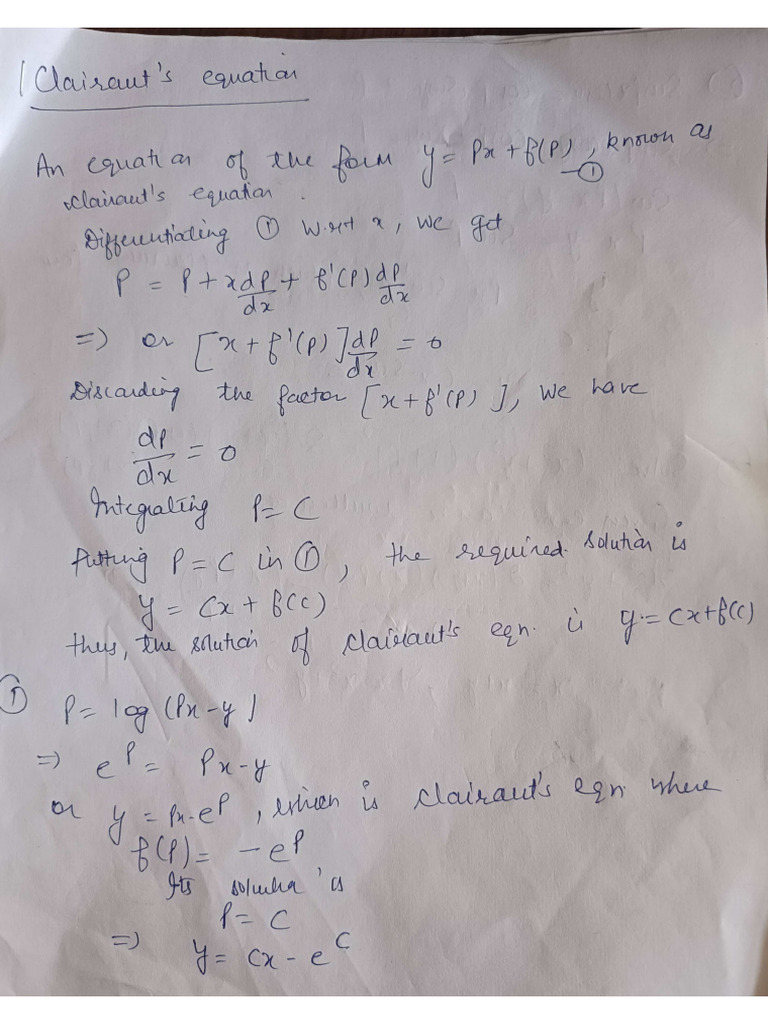 Clairaut's equation
An equation of the form y = Px + f(P), known as
—①
clairaut's equation.
Differentiating ① w.r.t x, we get
P = P + x dP/dx + f'(P) dP/dx
=) or [x + f'(P)] dP/dx = 0
Discarding the factor [x + f'(P)], we have
dP/dx = 0
Integrating P = C
Putting P = C in ①, the required solution is
y = Cx + f(C)
thus, the solution of clairaut's eqn. is y = Cx + f(C)
① P = log (Px - y)
=) e^P = Px - y
or y = Px - e^P, which is clairaut's eqn where
f(P) = - e^P
Its solution is
P = C
=) y = Cx - e^C